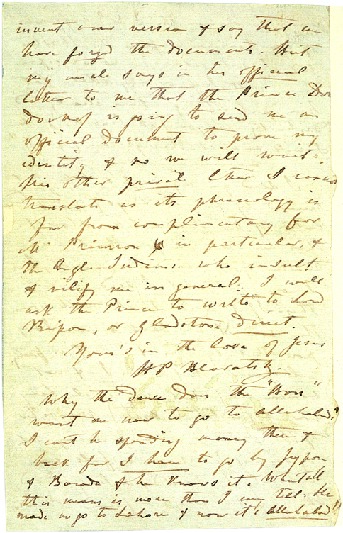 invent our version & say that we
have forged the documents. But
my uncle says in his official
letter to me that the Prince Don-
doukof is going to send me an
official document to prove my
identity & so we will wait.
His other private letter I cannot
translate as its phraseology is
far from complimentary for
Mr Primrose in particular, &
the Anglo-Indians who insult
& vilify me in general. I will
ask the Prince to write to Lord
Ripon, or Gladstone direct.
Yours in the love of Jesus
HP Blavatsky
Why the deuce does the "Boss"
want me now to go to Allahabad?
I can't be spending money there &
back for I have to go by Jeypur
& Baroda & he knows it. What all
this means is more than I can tell. He
made us go to Lahore & now it's Allahabad!!